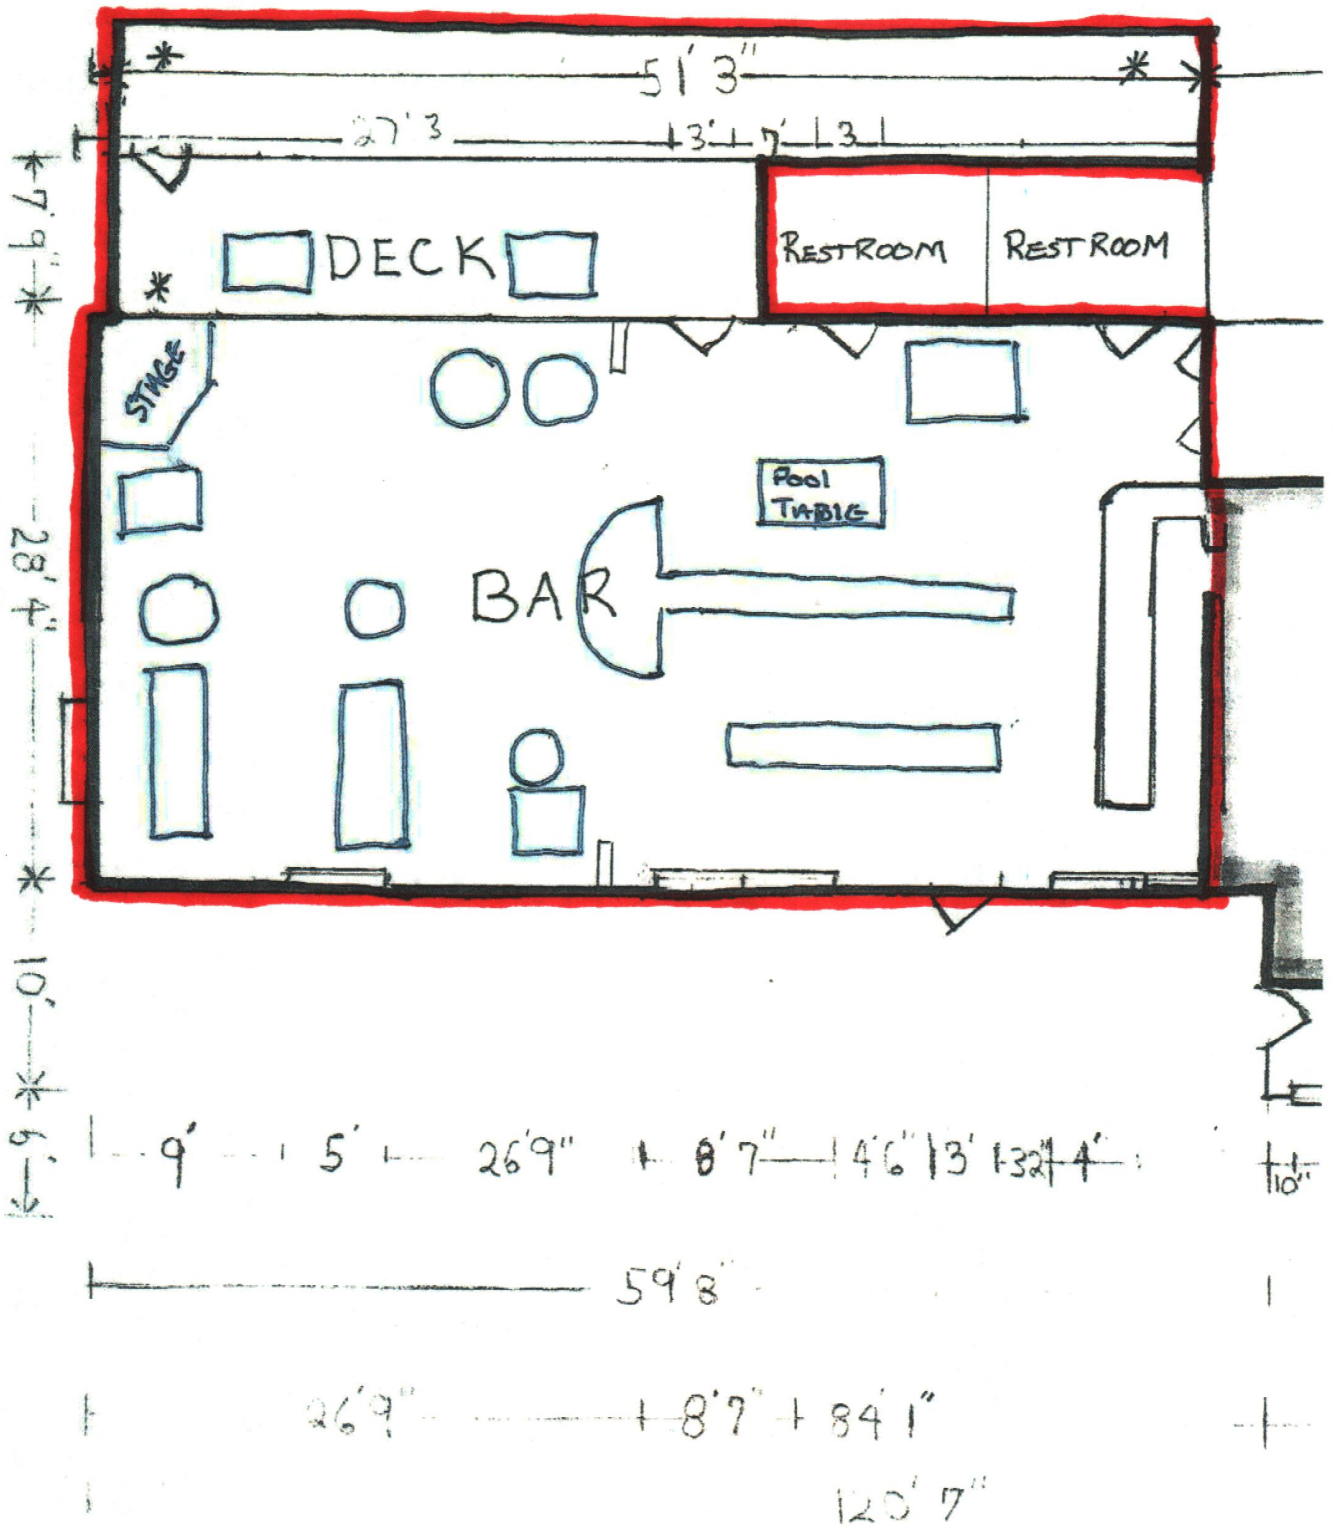 51'3"
27'3 3' 7' 3
7'9"
DECK
RESTROOM RESTROOM
STAGE
POOl
TABlE
BAR
28'4"
10'
6'
9' 5' 26'9" 8'7" 4'6" 3' 32 4' 10"
59'8"
26'9" 8'7" 84'1"
120'7"